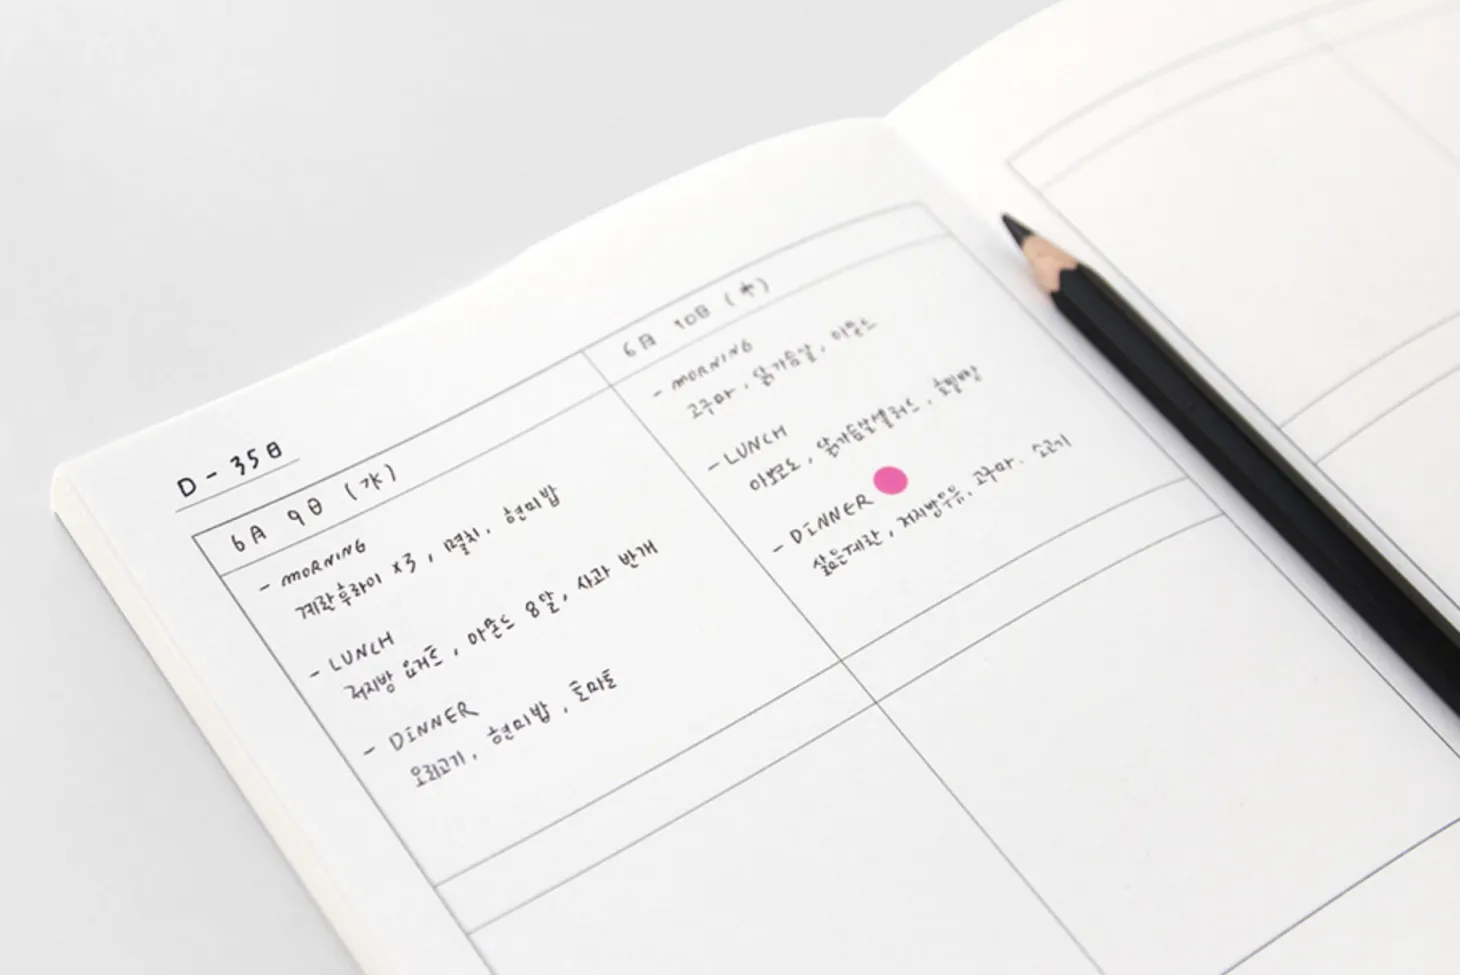 D-35日
6月 9日 (水)
- MORNING
계란후라이 x3, 멸치, 현미밥
- LUNCH
저지방 요거트, 아몬드 8알, 사과 반개
- DINNER
오리고기, 현미밥, 토마토
6月 10日 (木)
- MORNING
고구마, 닭가슴살, 아몬드
- LUNCH
아보카도, 닭가슴살샐러드, 호밀빵
- DINNER
삶은계란, 저지방우유, 고구마, 소고기